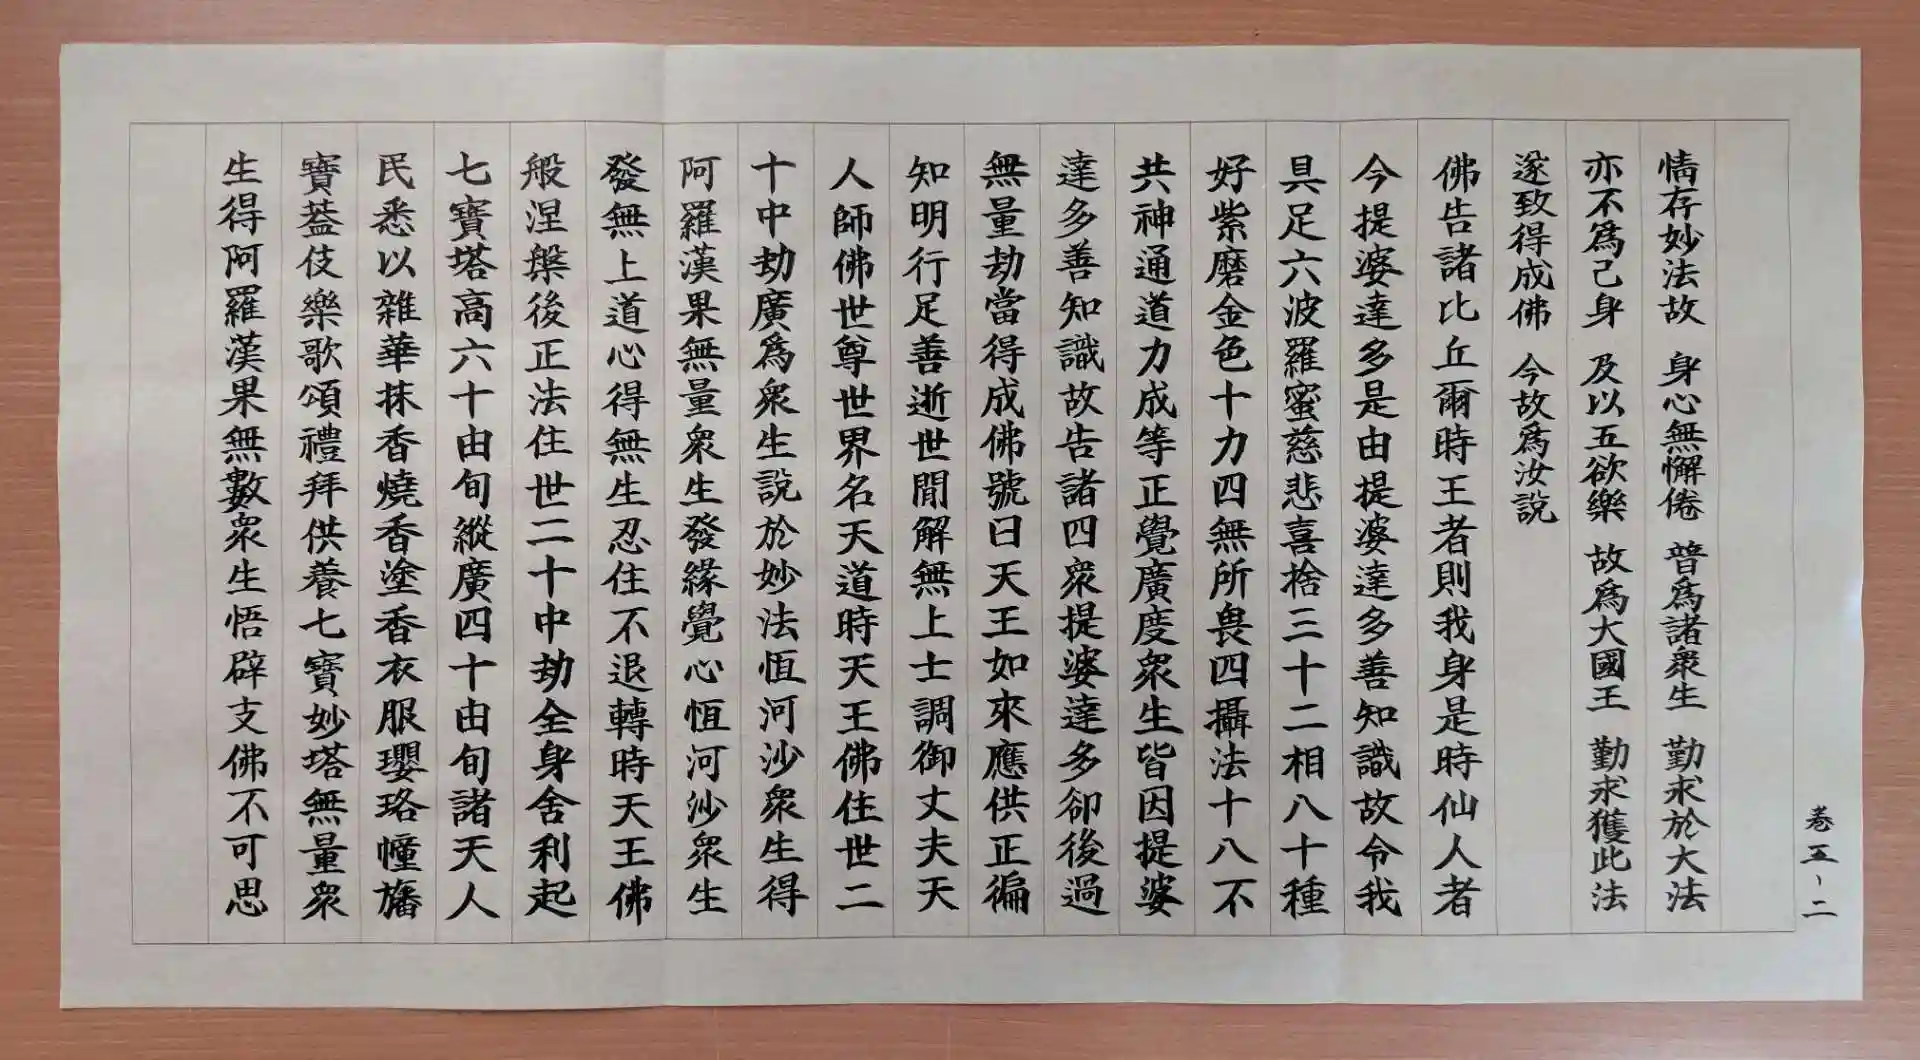 情存妙法故 身心無懈倦 普為諸衆生 勤求於大法
亦不為己身 及以五欲樂 故為大國王 勤求獲此法
遂致得成佛 今故為汝説
佛告諸比丘爾時王者則我身是時仙人者
今提婆達多是由提婆達多善知識故令我
具足六波羅蜜慈悲喜捨三十二相八十種
好紫磨金色十力四無所畏四攝法十八不
共神通道力成等正覺廣度衆生皆因提婆
達多善知識故告諸四衆提婆達多卻後過
無量劫當得成佛號曰天王如來應供正徧
知明行足善逝世閒解無上士調御丈夫天
人師佛世尊世界名天道時天王佛住世二
十中劫廣為衆生説於妙法恆河沙衆生得
阿羅漢果無量衆生發緣覺心恆河沙衆生
發無上道心得無生忍住不退轉時天王佛
般涅槃後正法住世二十中劫全身舍利起
七寶塔高六十由旬縱廣四十由旬諸天人
民悉以雜華抹香燒香塗香衣服瓔珞幢旛
寶蓋伎樂歌頌禮拜供養七寶妙塔無量衆
生得阿羅漢果無數衆生悟辟支佛不可思
卷五-二